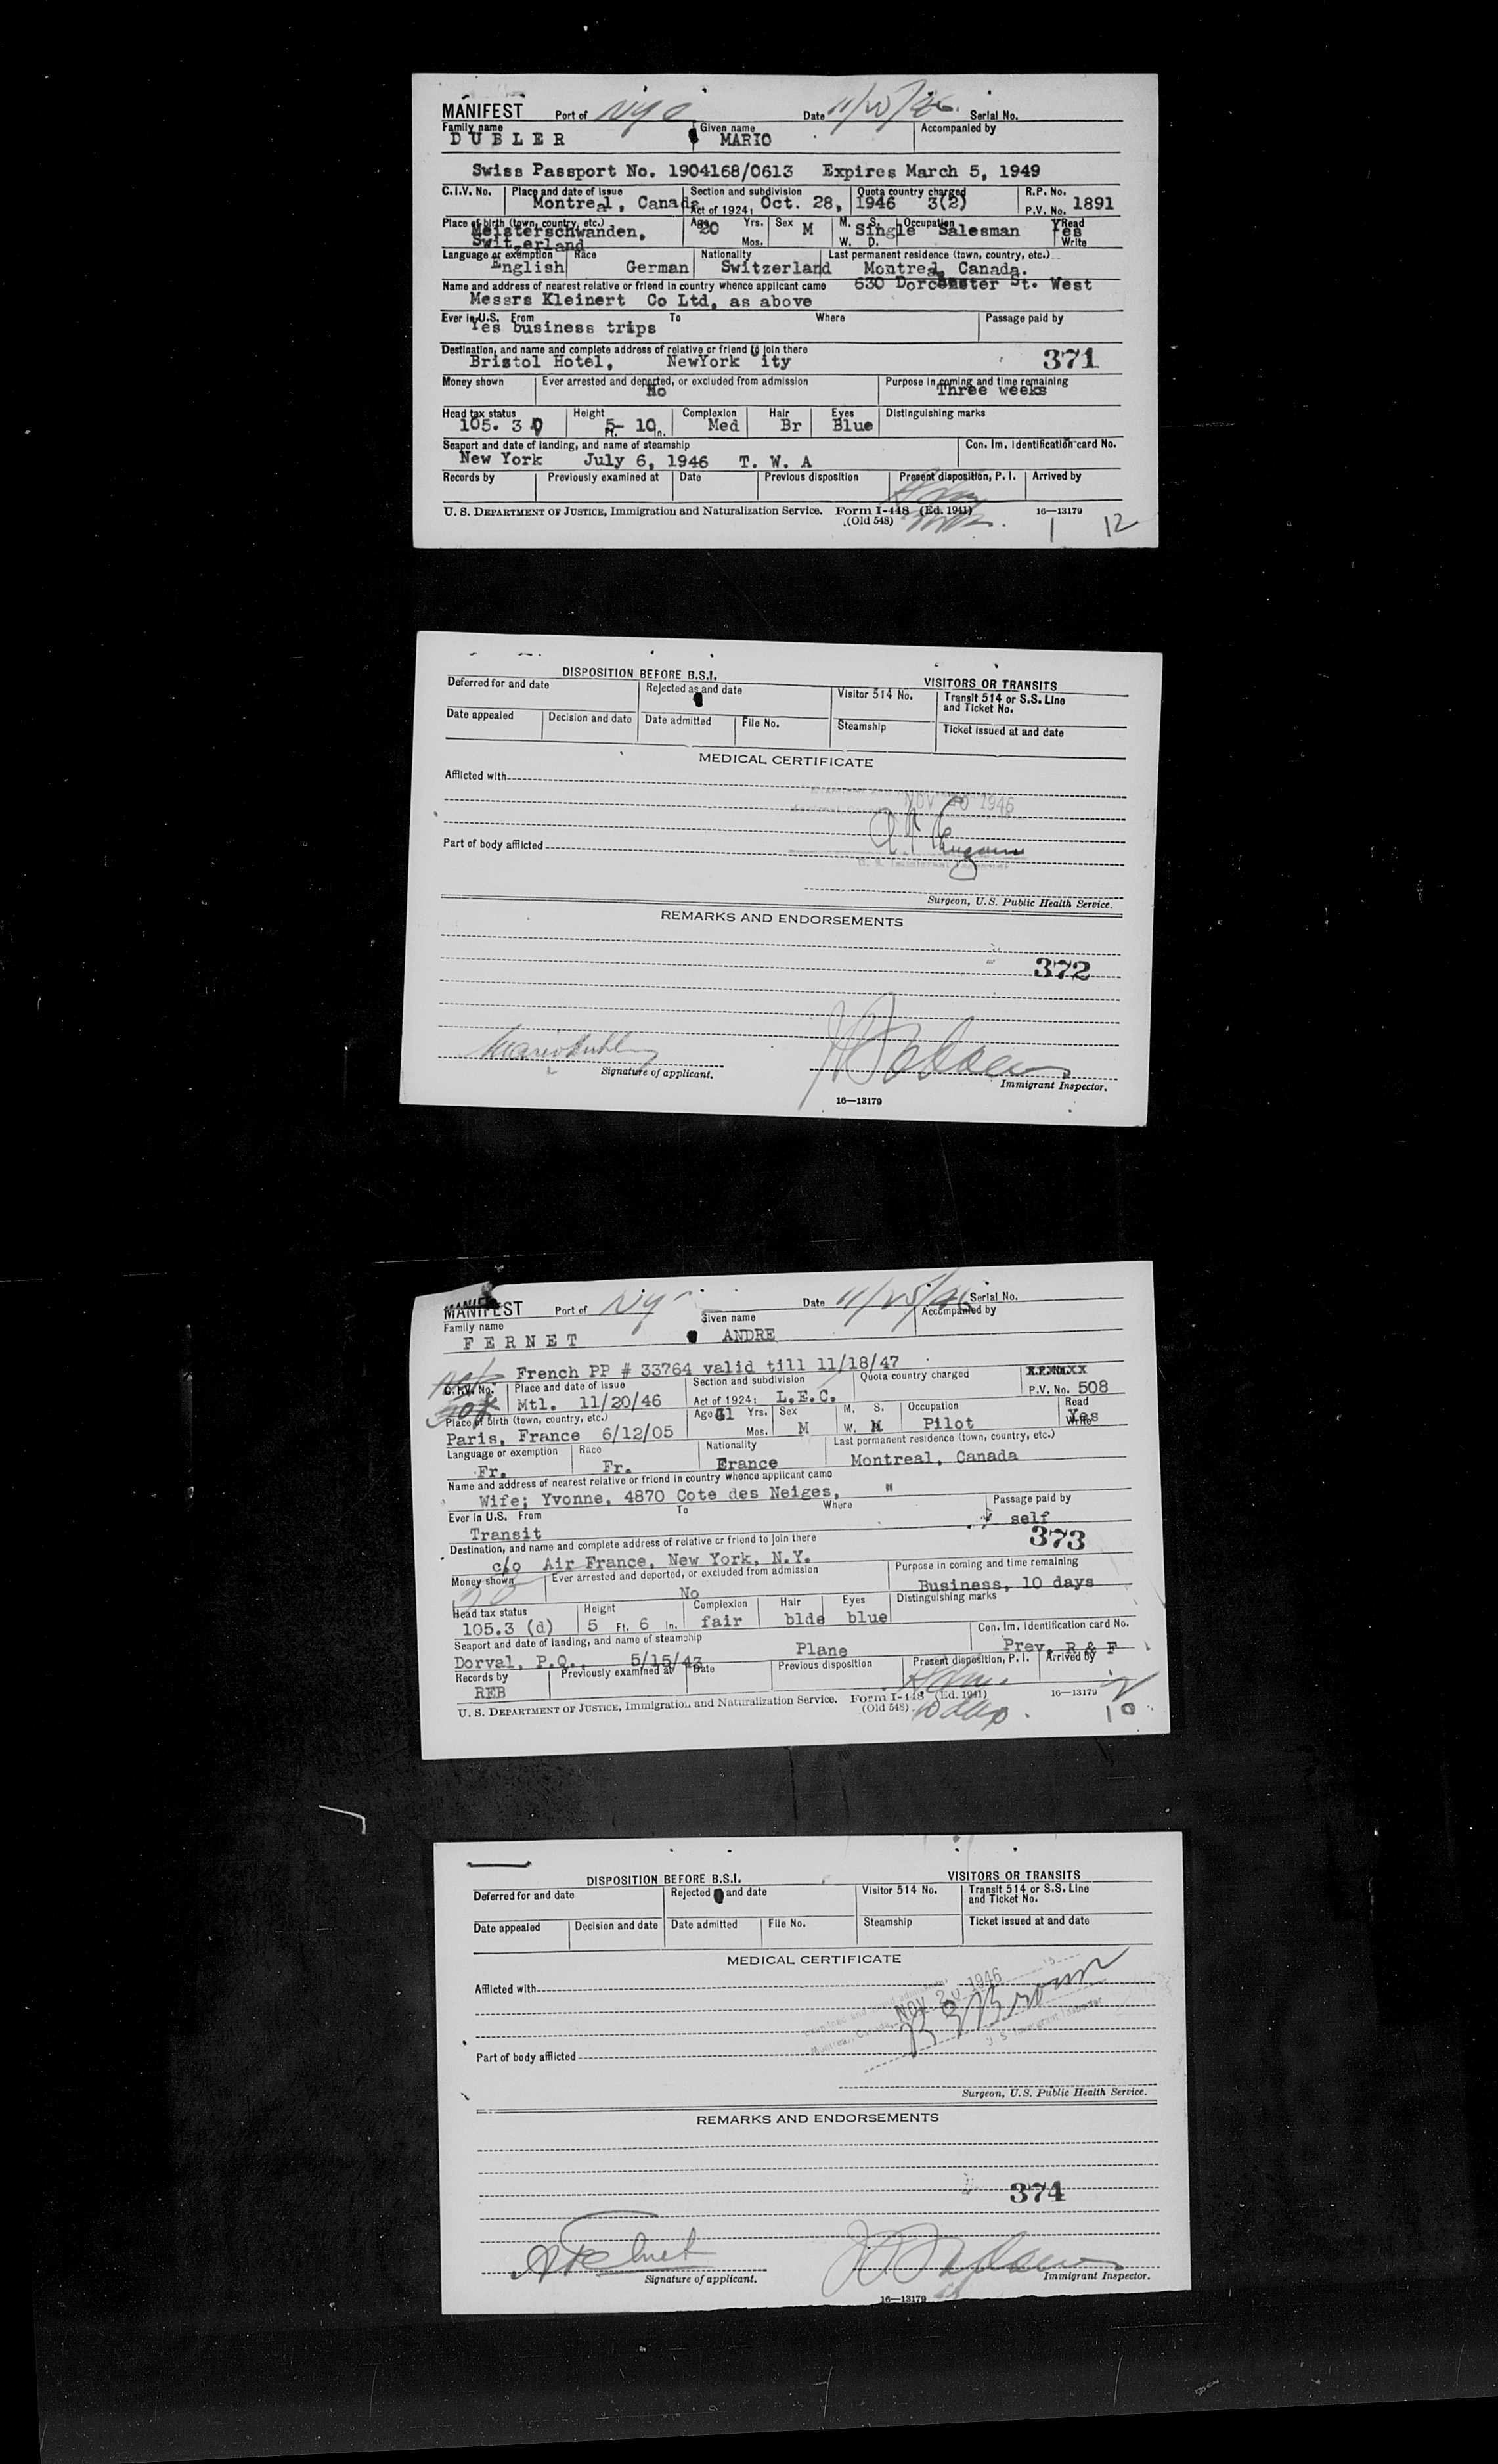 MANIFEST Port of NYC Date 11/20/46. Serial No.
Family name Given name Accompanied by
DUBLER MARIO
Swiss Passport No. 1904168/0613 Expires March 5, 1949
C.I.V. No. Place and date of issue Section and subdivision Quota country charged R.P. No.
Montreal, Canada Act of 1924: Oct. 28, 1946 3(2) P.V. No. 1891
Place of birth (town, country, etc.) Age Yrs. Sex M. S. Occupation Read
Meisterschwanden, 20 M Single Salesman Yes
Switzerland Mos. W. D. Write
Language or exemption Race Nationality Last permanent residence (town, country, etc.)
English German Switzerland Montreal, Canada.
Name and address of nearest relative or friend in country whence applicant came 630 Dorchester St. West
Messrs Kleinert Co Ltd, as above
Ever in U.S. From To Where Passage paid by
Yes business trips
Destination, and name and complete address of relative or friend to join there
Bristol Hotel, NewYork ity 371
Money shown Ever arrested and deported, or excluded from admission Purpose in coming and time remaining
No Three weeks
Head tax status Height Complexion Hair Eyes Distinguishing marks
105. 3 5 Ft. 10 In. Med Br Blue
Seaport and date of landing, and name of steamship Con. Im. Identification card No.
New York July 6, 1946 T. W. A
Records by Previously examined at Date Previous disposition Present disposition, P. I. Arrived by
U. S. DEPARTMENT OF JUSTICE, Immigration and Naturalization Service. Form I-448 (Ed. 1941) 16—13179
(Old 548) 1 12
DISPOSITION BEFORE B.S.I. VISITORS OR TRANSITS
Deferred for and date Rejected as and date Visitor 514 No. Transit 514 or S.S. Line
and Ticket No.
Date appealed Decision and date Date admitted File No. Steamship Ticket issued at and date
MEDICAL CERTIFICATE
Afflicted with
NOV 20 1946
Part of body afflicted
Surgeon, U.S. Public Health Service.
REMARKS AND ENDORSEMENTS
372
Mario Dubler
Signature of applicant. Immigrant Inspector.
16—13179
MANIFEST Port of NY Date 11/25/46 Serial No.
Family name Given name Accompanied by
FERNET ANDRE
French PP # 33764 valid till 11/18/47
C.I.V. No. Place and date of issue Section and subdivision Quota country charged
Mtl. 11/20/46 Act of 1924: L.E.C. P.V. No. 508
Place of birth (town, country, etc.) Age 41 Yrs. Sex M. S. Occupation Read
Paris, France 6/12/05 Mos. M W. M Pilot Yes Write
Language or exemption Race Nationality Last permanent residence (town, country, etc.)
Fr. Fr. France Montreal, Canada
Name and address of nearest relative or friend in country whence applicant came
Wife; Yvonne, 4870 Cote des Neiges, "
Ever in U.S. From To Where Passage paid by
Transit self
Destination, and name and complete address of relative or friend to join there 373
c/o Air France, New York, N.Y.
Money shown Ever arrested and deported, or excluded from admission Purpose in coming and time remaining
No Business, 10 days
Head tax status Height Complexion Hair Eyes Distinguishing marks
105.3 (d) 5 Ft. 6 In. fair blde blue
Seaport and date of landing, and name of steamship Con. Im. Identification card No.
Dorval, P.Q., 5/15/43 Plane Prev. R & F
Records by Previously examined at Date Previous disposition Present disposition, P. I. Arrived by
REB
U. S. DEPARTMENT OF JUSTICE, Immigration and Naturalization Service. Form I-448 (Ed. 1941) 16—13179
(Old 548) 10 days. 10
DISPOSITION BEFORE B.S.I. VISITORS OR TRANSITS
Deferred for and date Rejected and date Visitor 514 No. Transit 514 or S.S. Line
and Ticket No.
Date appealed Decision and date Date admitted File No. Steamship Ticket issued at and date
MEDICAL CERTIFICATE
Afflicted with
NOV 20 1946
Brown
U. S. Immigrant Inspector
Part of body afflicted
Surgeon, U.S. Public Health Service.
REMARKS AND ENDORSEMENTS
374
A Fernet
Signature of applicant. Immigrant Inspector.
16—13179